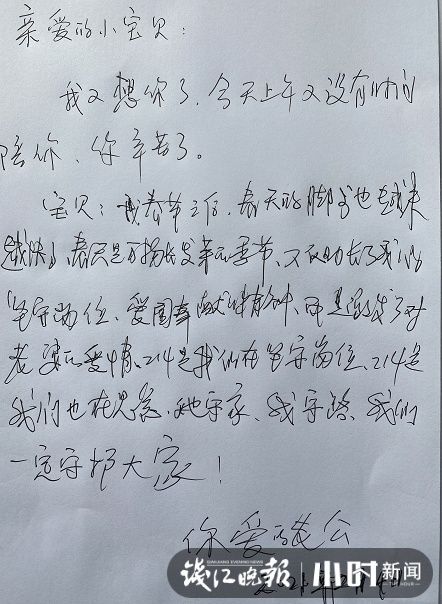 亲爱的小宝贝：
我又想你了，今天上午又没有时间
陪你、你辛苦了。
宝贝：春节之后，春天的脚步也越来
越快，春天是万物生发的季节，又助长了我们
坚守岗位、爱国奉献精神，激发了对
老婆的爱情、214是我们在坚守岗位、214是
我们也在思念，她守家、我守路、我们
一定守护大家！
你爱的老公
钱江晚报
QIANJIANG EVENING NEWS
小时新闻
THE HOUR